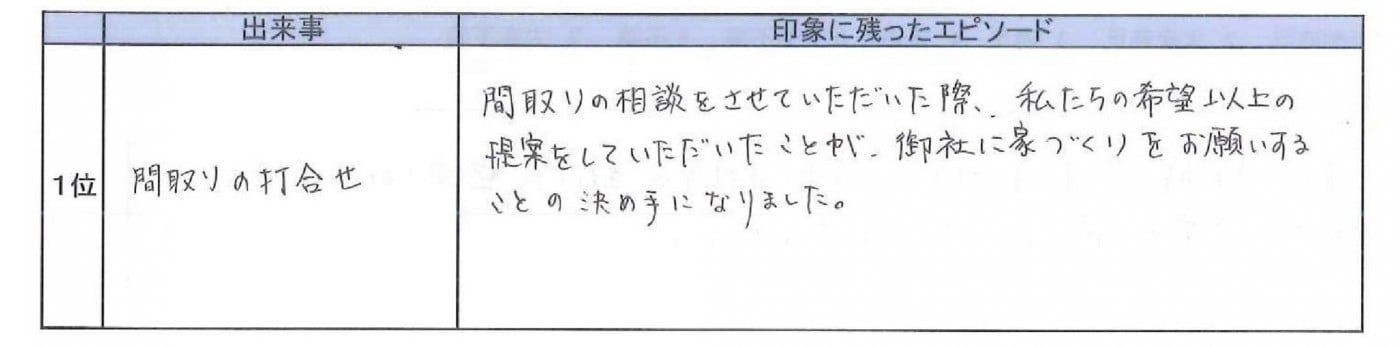 出来事
印象に残ったエピソード
1位
間取りの打合せ
間取りの相談をさせていただいた際、私たちの希望以上の
提案をしていただいたことが、御社に家づくりをお願いする
ことの決め手になりました。